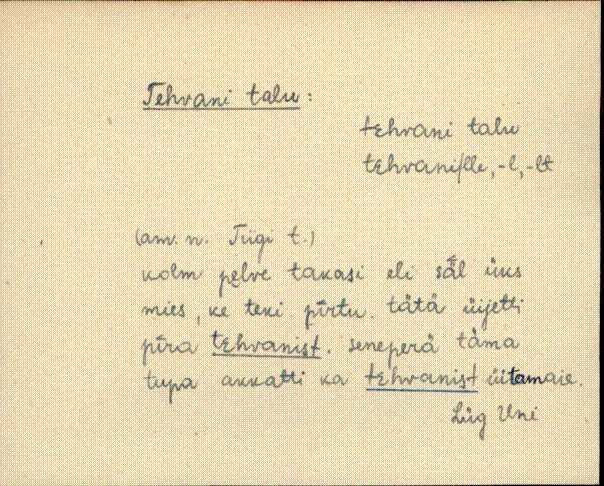 Tehvani talu:
tehvani talu
tehvani/lle, -l, -lt
(am. n. Tiigi t.)
kolm pelve takasi eli sääl üks
mies, ke teki pīrtu. tätä üijetti
pīra tehvanist. seneperä täma
tupa akkatti ka tehvanist üitamaie.
Lüg Uni